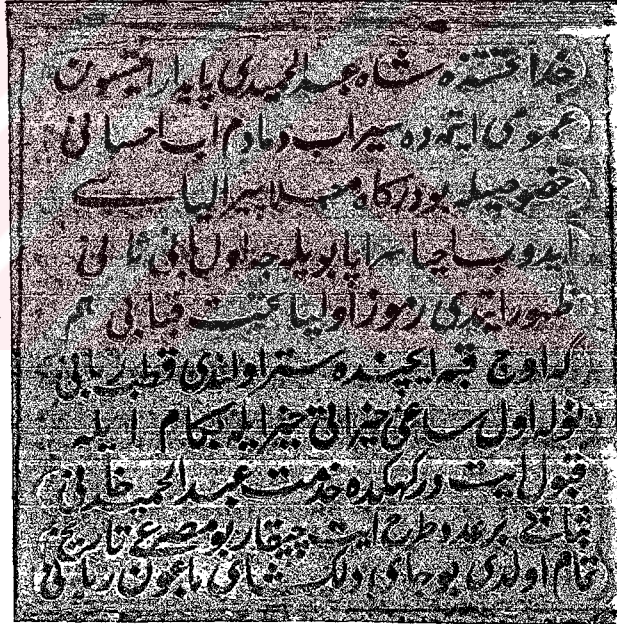 خدا تختنده شاه عبدالحمیدی پایدار ایتسون
عمومی ایتمده سیراب دمادم آب احسانی
خصوصیله بو درکاه پیر الیاسی
ایدوب احیا سراپا بویله جه اول بانئ ثانی
ظهور ایتدی رموز اولیا تحت قبابی هم
که اوچ قبه ایچنده ستر اولندی قطب ربانی
نوله اول ساعئ خیراتی خیر ایله بکام ایله
قبول ایت درکهکده خدمت عبدالحمید خانی
بر عدد طرح ایت چیقار بو مصرعی تاریخ
تمام اولدی بو جای دلکشای عون ربانی